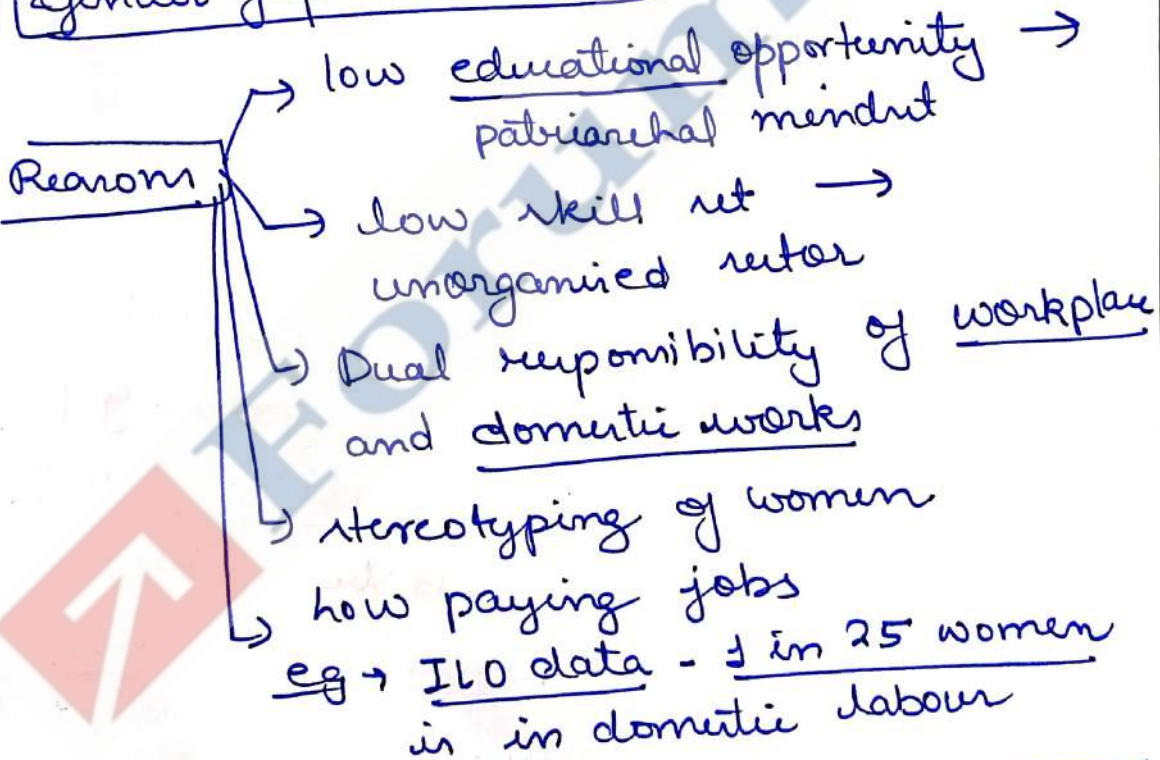 Gender
low educational opportunity →
patriarchal mindset
Reasons
low skill set →
unorganised sector
Dual responsibility of workplace
and domestic works
stereotyping of women
Low paying jobs
eg → ILO data - 1 in 25 women
is in domestic labour
Forum